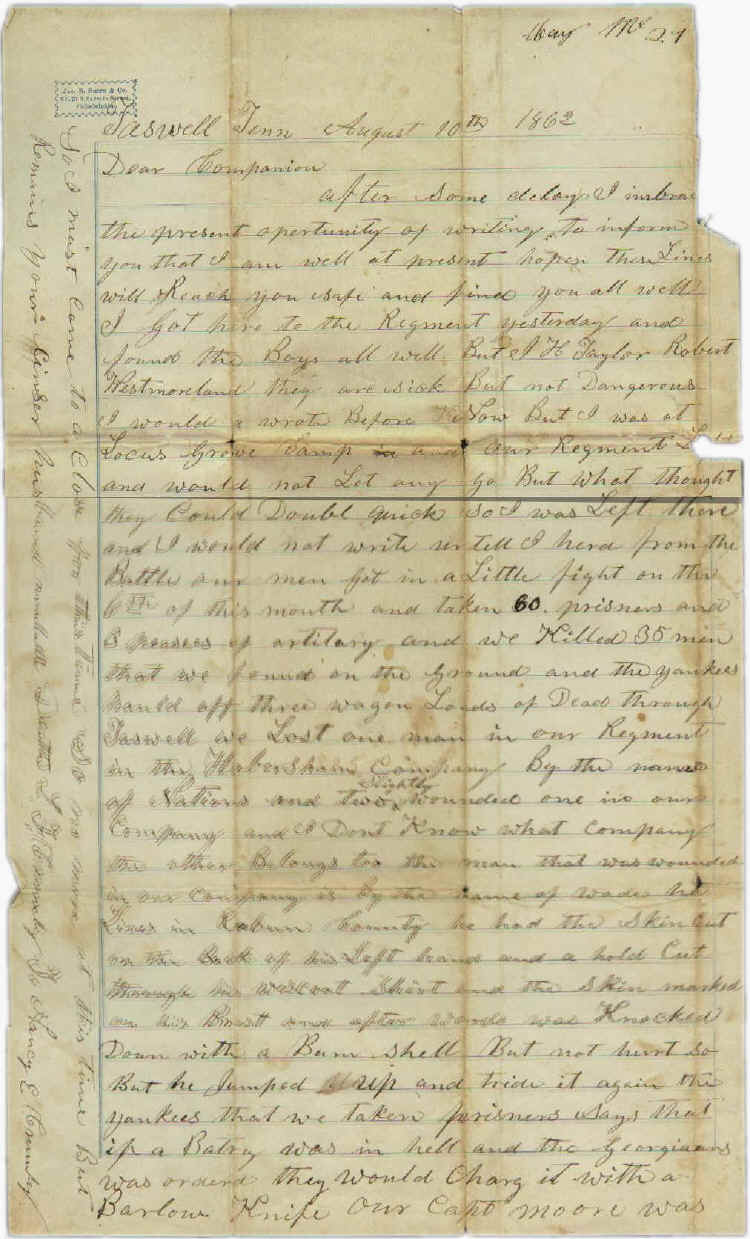 May 27
Taswell Tenn August 10th 1862
Dear Companion
after Some delay I imbrac
the present opertunity of writing to inform
you that I am well at present hopen these Lines
will Reach you safe and find you all well
I Got here to the Regment yesterday and
found the Boys all well But J H Taylor Robert
Westmoreland they are sick But not Dangerous
I would a wrote Before Now But I was at
Locus Grove Camp and our Regment
and would not Let any go But what thought
they Could Doubl quick So I was Left there
and I would not write untell I herd from the
Battle our men Got in a Little fight on the
6th of this mouth and taken 60 prisners and
3 peasees of artilary and we Killed 35 men
that we found on the Ground and the yankees
hauld off three wagon Loads of Dead through
Taswell we Lost one man in our Regment
in the Habersham Company By the name
of Nations and two Slightly wounded one in our
Company and I Dont Know what Company
the other Belongs too the man that was wounded
in our Company is by the name of wade he
Lives in Rabun County he had the Skin Cut
on the Back of his Left hand and a hold Cut
through his Shirt and the Skin marked
on his Brest and after wards was Knocked
Down with a Bum Shell But not hurt So
But he Jumped up and tride it again the
yankees that we taken prisners Says that
if a Batry was in hell and the Georgians
was orderd they would Charg it with a
Barlow Knife Our Capt moore was
So I must Come to a Close for this time No more at this time But
Remains your husband untell Death To Nancy E